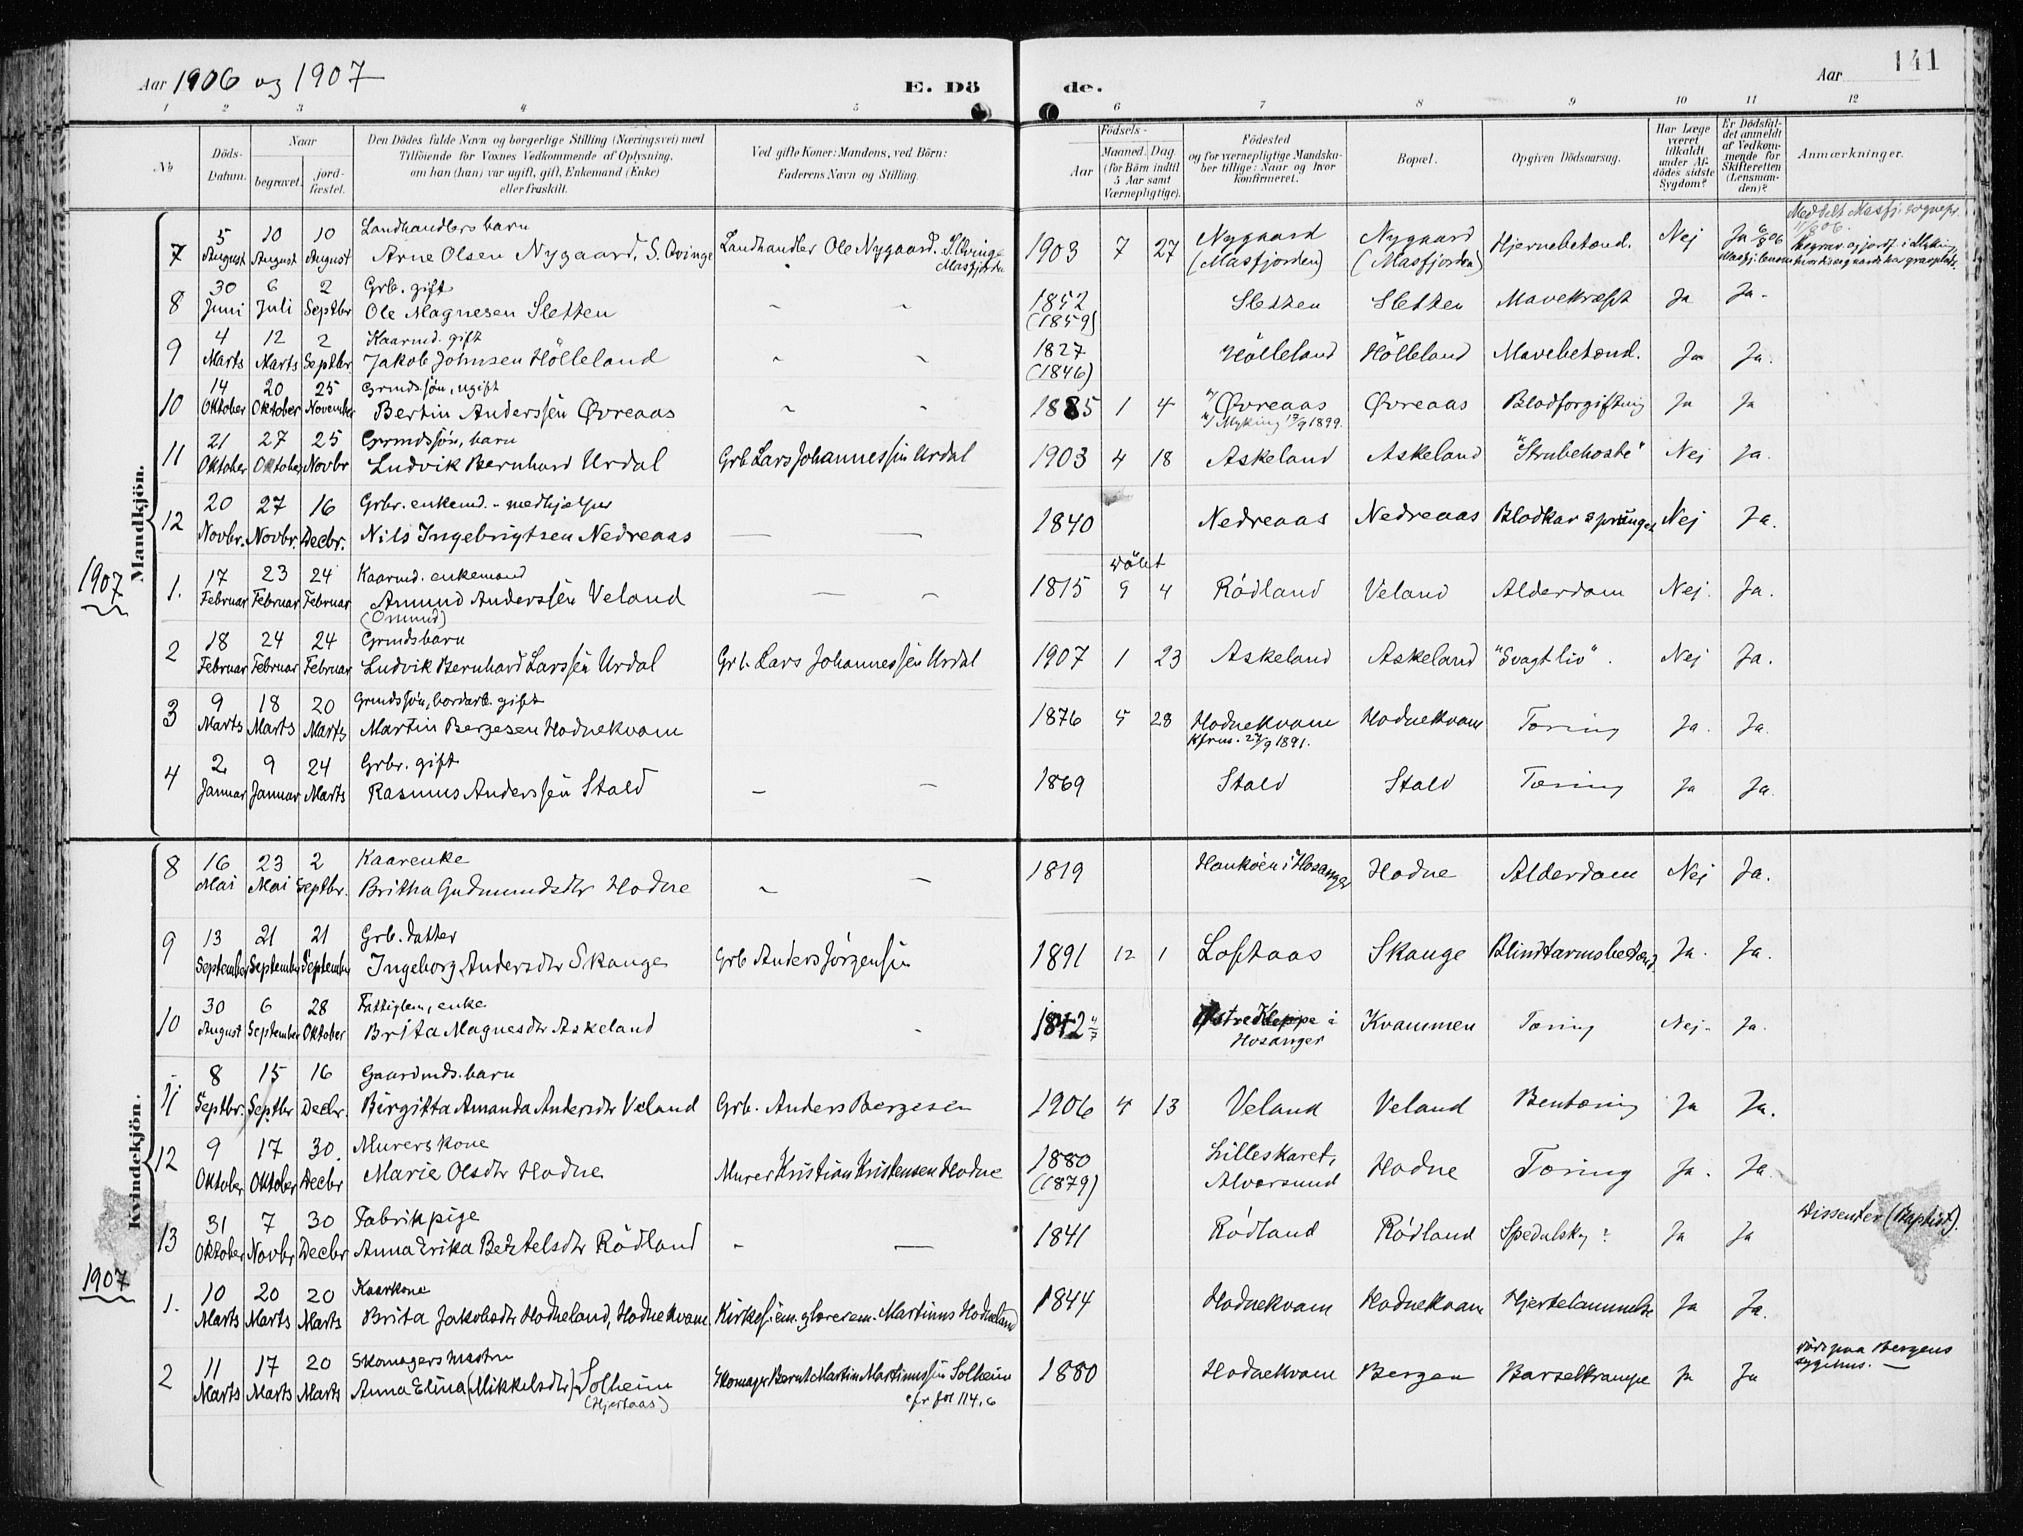 Aar 1906 og 1907 E. Dö de. Aar 141
1 2 3 4 5 6 7 8 9 10 11 12
No Döds-Datum. Naar begravet. jord-fæstet. Den Dödes fulde Navn og borgerlige Stilling (Næringsvei) med Tilföiende for Voxnes Vedkommende af Oplysning, om han (hun) var ugift, gift, Enkemand (Enke) eller fraskilt. Ved gifte Koner: Mandens, ved Börn: Faderens Navn og Stilling. Födsels- Aar Maaned. Dag (for Börn indtil 5 Aar samt Værnepligtige). Födested og for værnepligtige Mandskaber tillige: Naar og hvor konfirmeret. Bopæl. Opgiven Dödsaarsag. Har Læge været tilkaldt under Afdödes sidste Sygdom? Er Dödsfaldet anmeldt af Vedkommende for Skifteretten (Lensmanden)? Anmærkninger.
Mandkjön.
7 5 August 10 August 10 August Landhandlers barn Arne Olsen Nygaard, S. Qvinge Landhandler Ole Nygaard. S. Qvinge Masfjorden 1903 7 27 Nygaard (Masfjorden) Nygaard (Masfjorden) Hjernebetænd. Nej Ja 6/8 06
8 30 Juni 6 Juli 2 Septbr Grb. gift Ole Magnesen Sletten 1852 (1859) Sletten Sletten Mavekræft Ja Ja.
9 4 Marts 12 Marts 2 Septbr Kaarmd. gift Jakob Johnsen Hölleland 1827 (1846) Hölleland Hölleland Mavebetænd. Ja Ja.
10 14 Oktober 20 Oktober 25 November Grmds.søn, ugift Bertin Anderssen Øvreaas 1885 1 4 Øvreaas Myking 17/9 1899. Øvreaas Blodforgiftning Ja Ja
11 21 Oktober 27 Oktober 25 Novbr Grmdssøn, barn Ludvik Bernhard Urdal Grb. Lars Johannessen Urdal 1903 4 18 Askeland Askeland "Strubehoste" Nej Ja.
12 20 Novbr. 27 Novbr. 16 Decbr. Grbr. enkemd. - medhjelper Nils Ingebrigtsen Nedreaas 1840 Nedreaas Nedreaas Blodkar sprunget Nej Ja.
1907
1. 17 Februar 23 Februar 24 Februar Kaarmd. enkemand Amund Anderssen Veland (Omund) 1815 döbt 9 4 Rödland Veland Alderdom Nej. Ja.
2 18 Februar 24 Februar 24 Februar Grmdsbarn Ludvik Bernhard Larssen Urdal Grb. Lars Johannessen Urdal 1907 1 23 Askeland Askeland "Svagt liv". Nej Ja.
3 9 Marts 18 Marts 20 Marts Grmdssøn, bordarb. gift Martin Bergesen Hodnekvam 1876 5 28 Hodnekvam Kfrm. 27/9 1891. Hodnekvam Tæring Ja. Ja.
4 2 Januar 9 Januar 24 Marts Grbr. gift Rasmus Anderssen Stald 1869 Stald Stald Tæring Ja Ja.
Kvindekjön.
8 16 Mai 23 Mai 2 Septbr. Kaarenke Britha Gudmundsdtr Hodne 1819 i Hosanger Hodne Alderdom Nej Ja.
9 13 September 21 September 21 September Grb. datter Ingeborg Andersdtr Skauge Grb Anders Jørgensen 1891 12 1 Loftaas Skauge Blindtarmsbetænd Ja. Ja.
10 30 August 6 September 28 Oktober Fattiglem, enke Brita Magnesdtr Askeland 1842 4/7 Østre Kleppe i Hosanger Kvammen Tæring Nej. Ja.
11 8 Septbr. 15 Septbr 16 Decbr. Gaardmds. barn Birgitta Amanda Andersdtr Veland Grb. Anders Bergesen 1906 4 13 Veland Veland Bentæring Ja Ja.
12 9 Oktober 17 Oktober 30. Decbr Murerskone Marie Olsdtr Hodne Murer Kristian Kristensen Hodne 1880 (1879) Lilleskaret, Alversund Hodne Tæring Ja. Ja.
13 31 Oktober 7 Novbr 30 Decbr Fabrikpige Anna Erika Bertelsdtr Rödland 1841 Rödland Rödland Spedalsk? Ja Ja Dissenter (Baptist).
1907
1. 10 Marts 20 Marts 20 Marts Kaarkone Brita Jakobsdtr Hodneland, Hodnekvam Kirkesem. Martinus Hodneland 1844 Hodnekvam Hodnekvam Hjertelammelse Ja Ja.
2 11 Marts 17 Marts 20 Marts Skomagers hustru Anna Elina (Mikkelsdtr) Solheim (Hjertaas) Skomager Bernt Martin Martinussen Solheim cfr fol 114,6 1880 Hodnekvam Bergen Barselkrampe Ja Ja Död paa Bergens sygehus.